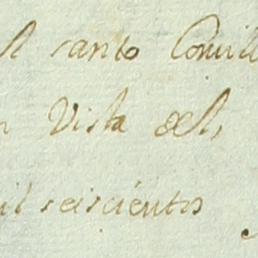 el santo Concili
n Vista del,
il seiscientos